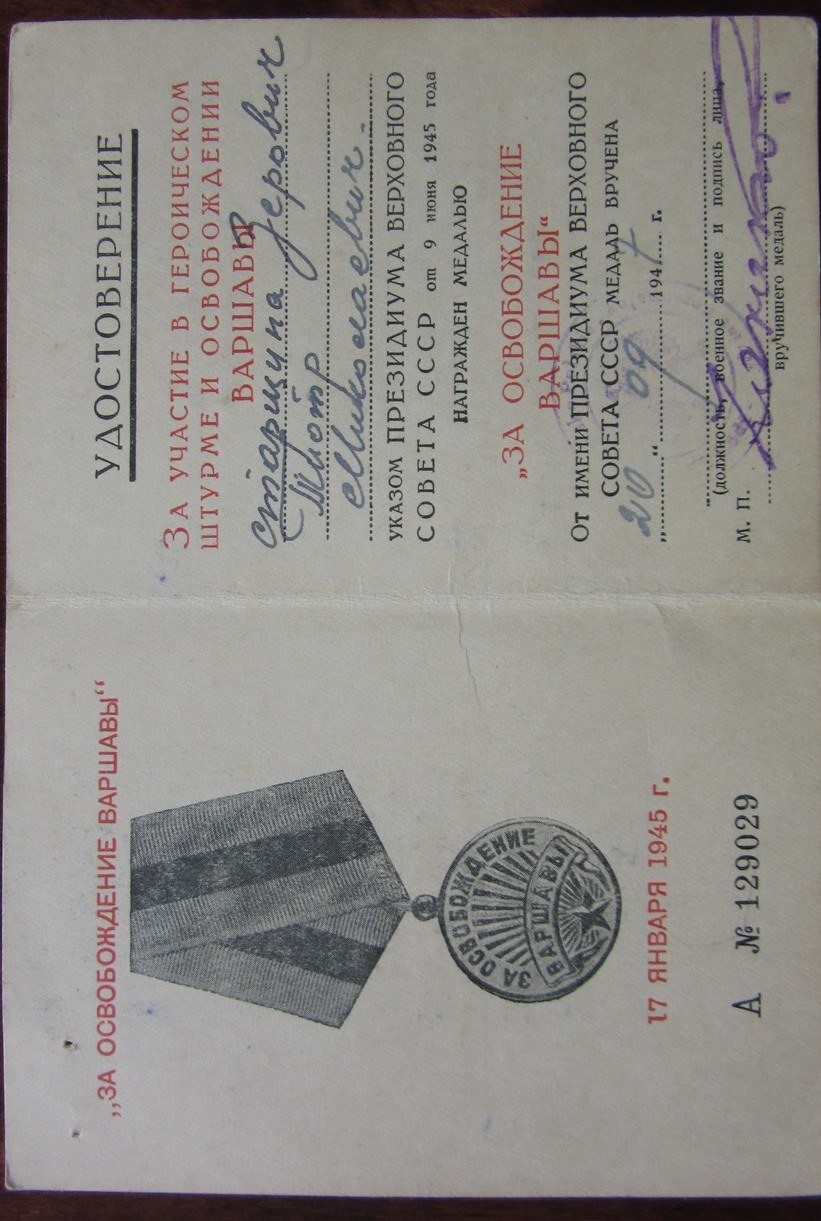 „ЗА ОСВОБОЖДЕНИЕ ВАРШАВЫ“
ЗА ОСВОБОЖДЕНИЕ
ВАРШАВЫ
17 ЯНВАРЯ 1945 г.
А № 129029
УДОСТОВЕРЕНИЕ
ЗА УЧАСТИЕ В ГЕРОИЧЕСКОМ
ШТУРМЕ И ОСВОБОЖДЕНИИ
ВАРШАВЫ
старшина
Пиотр
Миколаевич.
УКАЗОМ ПРЕЗИДИУМА ВЕРХОВНОГО
СОВЕТА СССР от 9 июня 1945 года
НАГРАЖДЕН МЕДАЛЬЮ
„ЗА ОСВОБОЖДЕНИЕ
ВАРШАВЫ“
От имени ПРЕЗИДИУМА ВЕРХОВНОГО
СОВЕТА СССР МЕДАЛЬ ВРУЧЕНА
„20“ 09 1947 г.
(должность, военное звание и подпись лица,
М. П.
вручившего медаль)